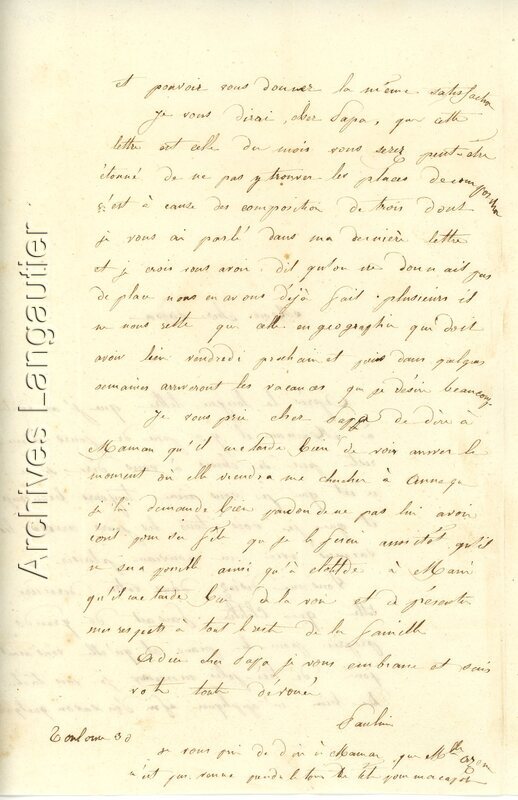 et pouvoir vous donner la même satisfaction
Je vous dirai, cher Papa, que cette
lettre est celle du mois vous serez peut-être
étonné de ne pas y trouver les places de composition
c'est à cause des composition de trois dont
je vous ai parlé dans ma dernière lettre
et je crois vous avoir dit qu'on ne donnait pas
de place nous en avons déjà fait plusieurs il
ne nous reste que celle en geographie qui doit
avoir lieu vendredi prochain et puis dans quelques
semaines arriveront les vacances que je désire beaucoup
Je vous prie cher Papa de dire à
Maman qu'il me tarde bien de voir arriver le
moment où elle viendra me chercher à
je lui demande bien pardon de ne pas lui avoir
écrit pour sa fête que je le ferai aussitôt qu'il
me sera possible ainsi qu'à clotilde à Mimi
qu'il me tarde bien de la voir et de présenter
mes respects à tout le reste de la famille
Adieu cher Papa je vous embrasse et suis
votre toute dévouée
Pauline
Toulouse 30
je vous prie de dire à Maman que Mlle
n'est pas venue prendre le tour de tête pour ma capote
Archives Langautier